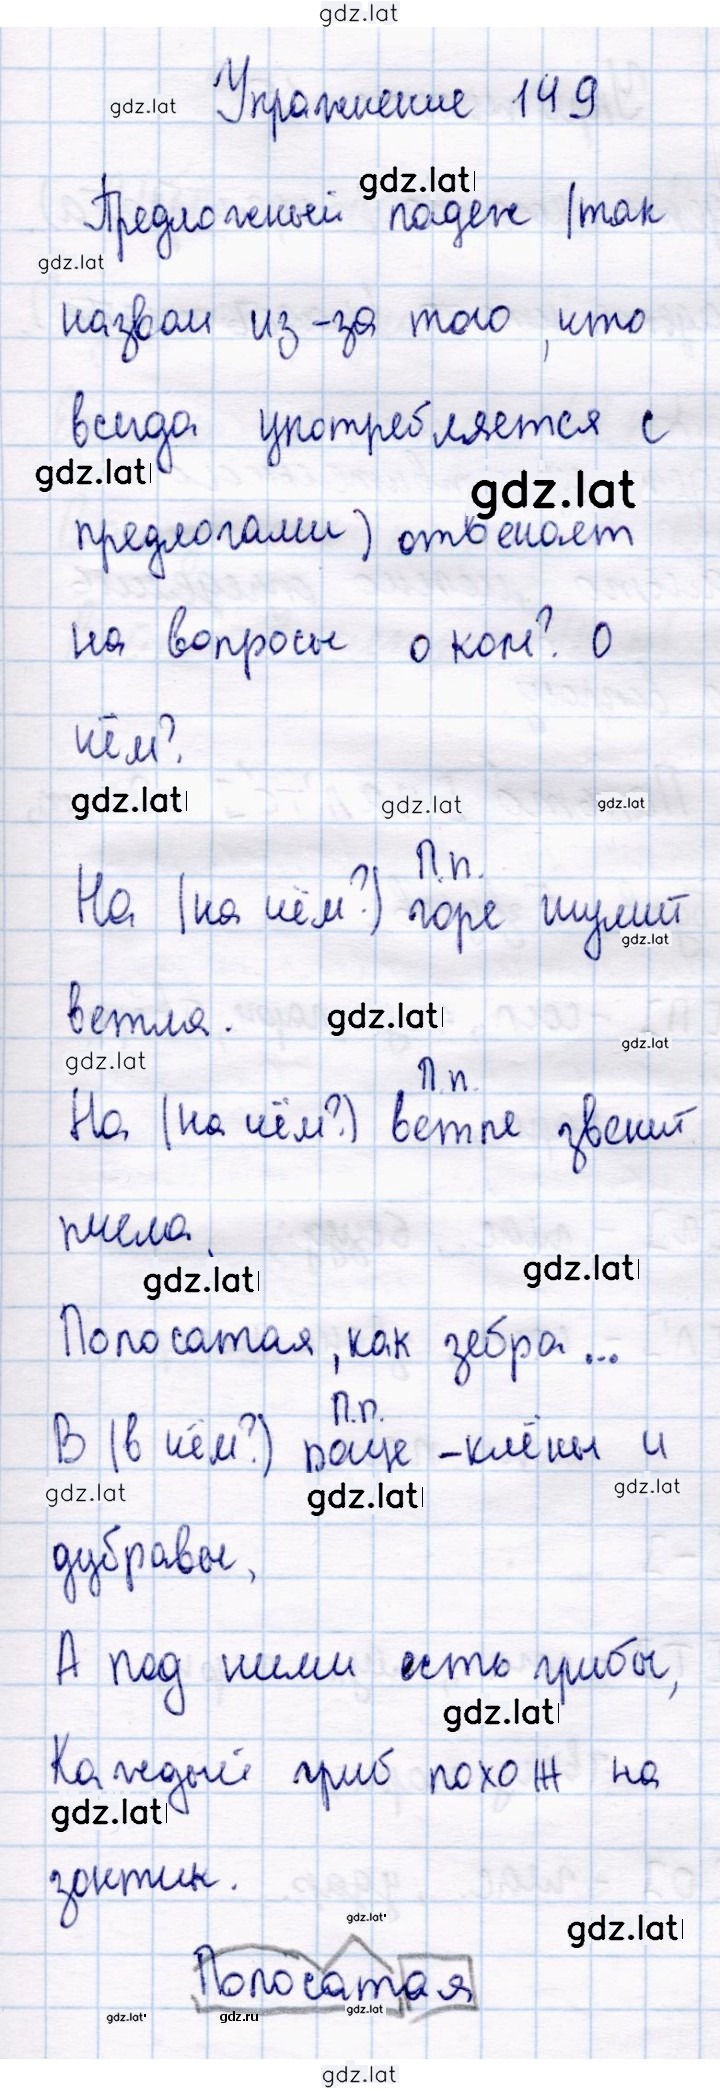 gdz.lat
gdz.lat Упражнение 149
gdz.lat
Предложный падеж (так
gdz.lat
назвали из-за того, что
всегда употребляется с
gdz.lat gdz.lat
предлогами) отвечает
на вопросы о ком? О
чём?
gdz.lat gdz.lat gdz.lat
П.п.
На (на чём?) горе шумит
gdz.lat
ветла. gdz.lat
gdz.lat gdz.lat
П.п.
На (на чём?) ветле звенит
пчела.
gdz.lat gdz.lat
Полосатая, как зебра...
П.п.
В (в чём?) роще - клёны и
gdz.lat gdz.lat gdz.lat
дубравы,
А под ними есть грибы,
gdz.lat
Каждый гриб похож на
gdz.lat
зонтик.
gdz.lat gdz.lat
Полосатая
gdz.lat gdz.ru gdz.lat
gdz.lat